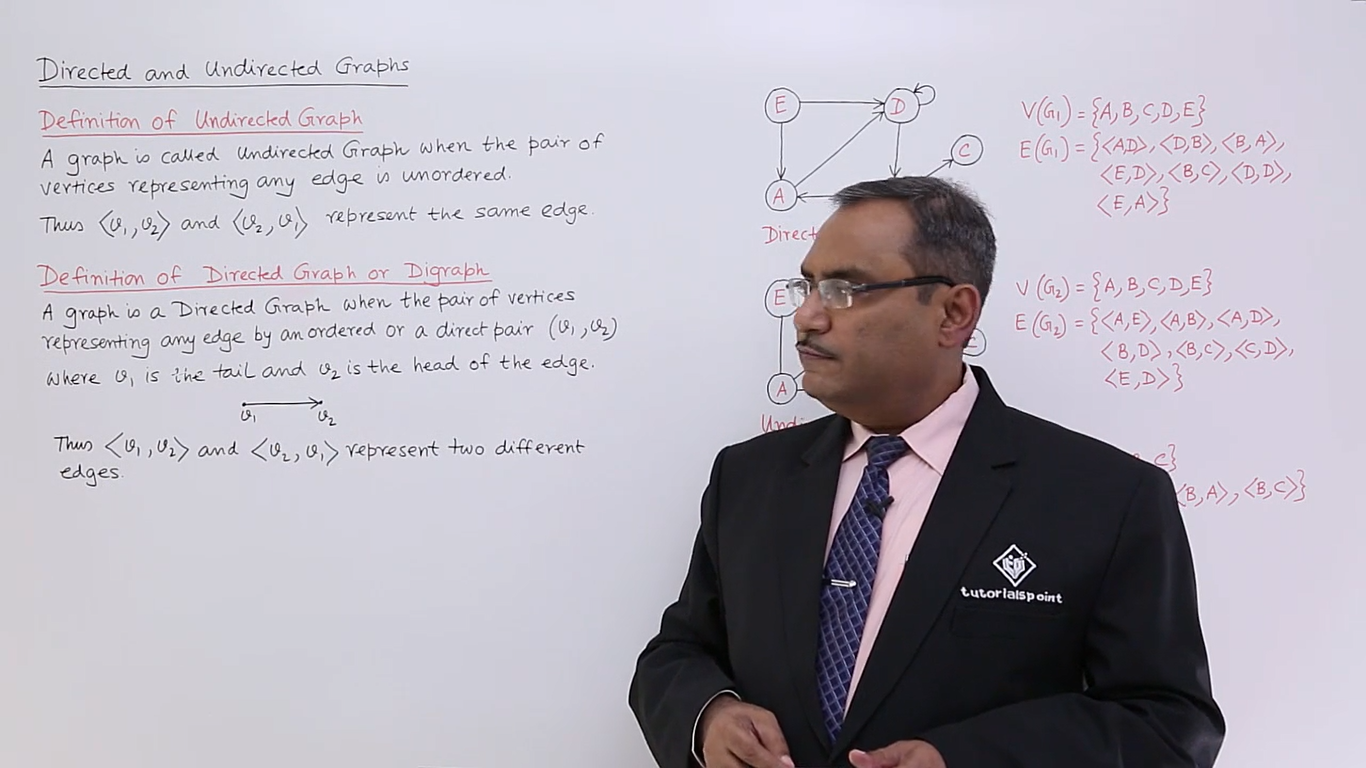 Directed and Undirected Graphs
Definition of Undirected Graph
A graph is called Undirected Graph when the pair of
vertices representing any edge is unordered.
Thus ⟨v₁, v₂⟩ and ⟨v₂, v₁⟩ represent the same edge.
Definition of Directed Graph or Digraph
A graph is a Directed Graph when the pair of vertices
representing any edge by an ordered or a direct pair (v₁, v₂)
where v₁ is the tail and v₂ is the head of the edge.
v₁ v₂
Thus ⟨v₁, v₂⟩ and ⟨v₂, v₁⟩ represent two different
edges.
E D
C
A
E
C
A
V(G₁) = {A, B, C, D, E}
E(G₁) = {⟨A,D⟩, ⟨D,B⟩, ⟨B,A⟩,
⟨E,D⟩, ⟨B,C⟩, ⟨D,D⟩,
⟨E,A⟩}
V(G₂) = {A, B, C, D, E}
E(G₂) = {⟨A,E⟩, ⟨A,B⟩, ⟨A,D⟩,
⟨B,D⟩, ⟨B,C⟩, ⟨C,D⟩,
⟨E,D⟩}
C}
⟨B,A⟩, ⟨B,C⟩}
tutorialspoint